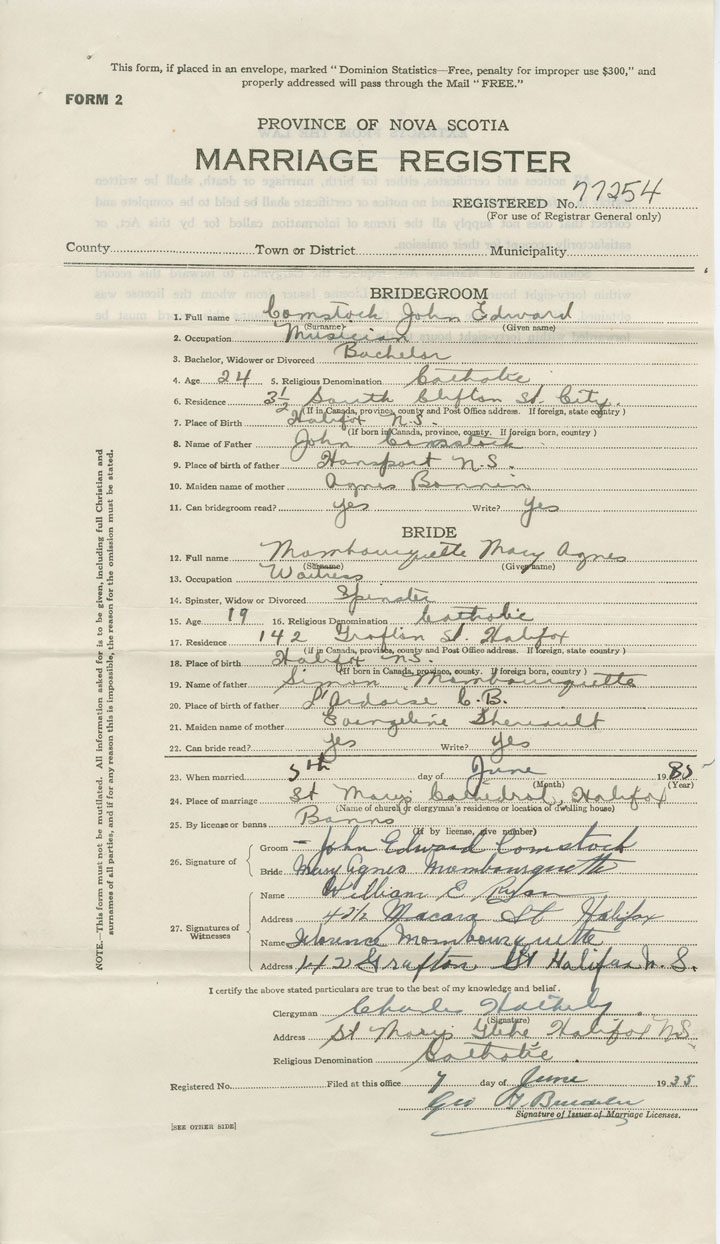 This form, if placed in an envelope, marked "Dominion Statistics—Free, penalty for improper use $300," and
properly addressed will pass through the Mail "FREE."
FORM 2
PROVINCE OF NOVA SCOTIA
MARRIAGE REGISTER
REGISTERED No. 77254
(For use of Registrar General only)
County Town or District Municipality
BRIDEGROOM
1. Full name Comstock John Edward
(Surname) (Given name)
2. Occupation Musician
3. Bachelor, Widower or Divorced Bachelor
4. Age 24 5. Religious Denomination Catholic
6. Residence 3½ South Clifton St. City.
(If in Canada, province, county and Post Office address. If foreign, state country)
7. Place of Birth Halifax N.S.
(If born in Canada, province, county. If foreign born, country)
8. Name of Father John Comstock
9. Place of birth of father Hansport N.S.
10. Maiden name of mother Agnes Bonnin
11. Can bridegroom read? yes Write? yes
BRIDE
12. Full name Mombourquette Mary Agnes
(Surname) (Given name)
13. Occupation Waitress
14. Spinster, Widow or Divorced Spinster
15. Age 19 16. Religious Denomination Catholic
17. Residence 142 Grafton St. Halifax
(if in Canada, province, county and Post Office address. If foreign, state country)
18. Place of birth Halifax N.S.
(If born in Canada, province, county. If foreign born, country)
19. Name of father Simon Mombourquette
20. Place of birth of father L'Ardoise C.B.
21. Maiden name of mother Evangeline Theriault
22. Can bride read? yes Write? yes
23. When married 5th day of June 1935
(Month) (Year)
24. Place of marriage St Mary's Cathedral, Halifax
(Name of church or clergyman's residence or location of dwelling house)
25. By license or banns Banns
(If by license, give number)
26. Signature of
Groom John Edward Comstock
Bride Mary Agnes Mombourquette
27. Signatures of Witnesses
Name William E Ryan
Address Macara St Halifax
Name Florence Mombourquette
Address 142 Grafton St Halifax N.S.
I certify the above stated particulars are true to the best of my knowledge and belief.
Clergyman Charles
(Signature)
Address St Mary's Glebe Halifax NS
Religious Denomination Catholic
Registered No. Filed at this office 7 day of June 1935
Geo
Signature of Issuer of Marriage Licenses.
[SEE OTHER SIDE]
NOTE.—This form must not be mutilated. All information asked for is to be given, including full Christian and
surnames of all parties, and if for any reason this is impossible, the reason for the omission must be stated.